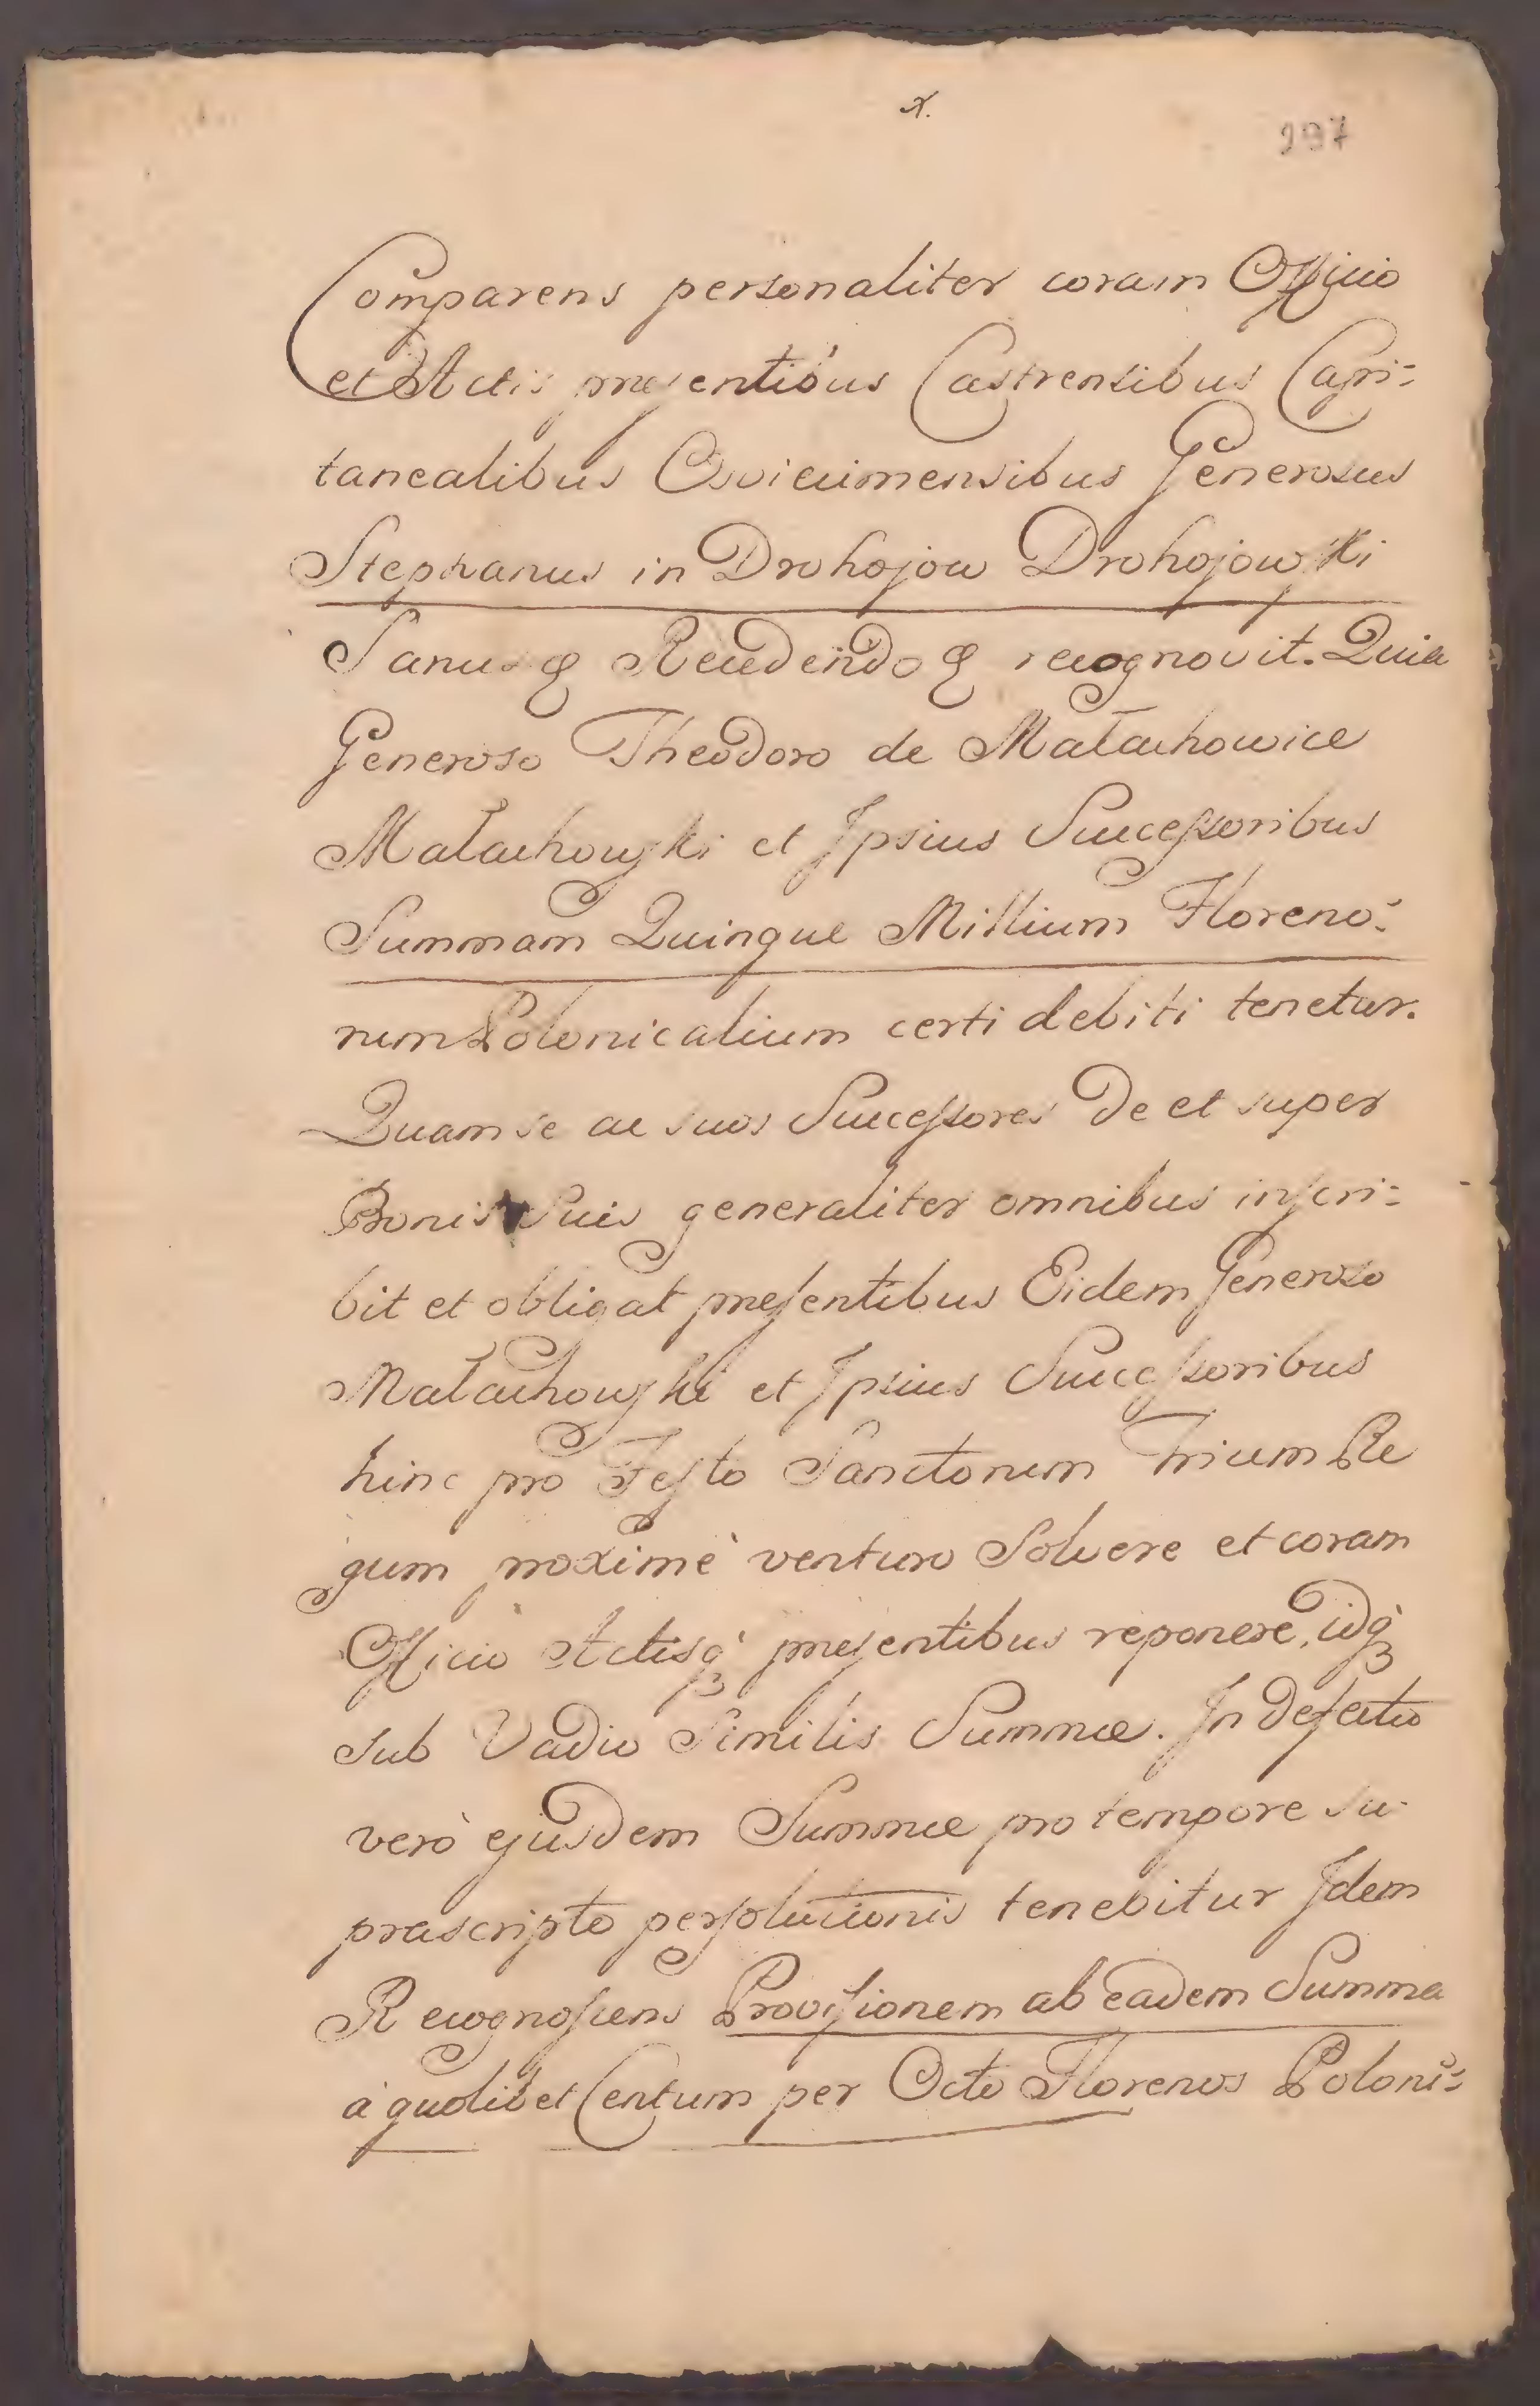 x.
297
Comparens personaliter coram Officio
et Actis præsentibus Castrensibus Capi=
tanealibus Osviecimensibus Generosus
Stephanus in Drohojow Drohojowski
Sanus & Recedendo & recognovit. Quia
Generoso Theodoro de Małachowice
Małachowski et Ipsius Successoribus
Summam Quinque Millium Floreno=
rum Polonicalium certi debiti tenetur.
Quam se ac suos Successores De et super
Bonis Suis generaliter omnibus inscri=
bit et obligat præsentibus Eidem Generoso
Małachowski et Ipsius Successoribus
hinc pro Festo Sanctorum Trium Re
gum proximè venturo Solvere et coram
Officio Actisq́ præsentibus reponere, idq́
sub Vadio Similis Summæ. In defectu
verò ejusdem Summæ pro tempore su-
prascripto persolutionis tenebitur Idem
Recognoscens Provisionem ab eadem Summa
à quolibet Centum per Octo Florenos Poloni=